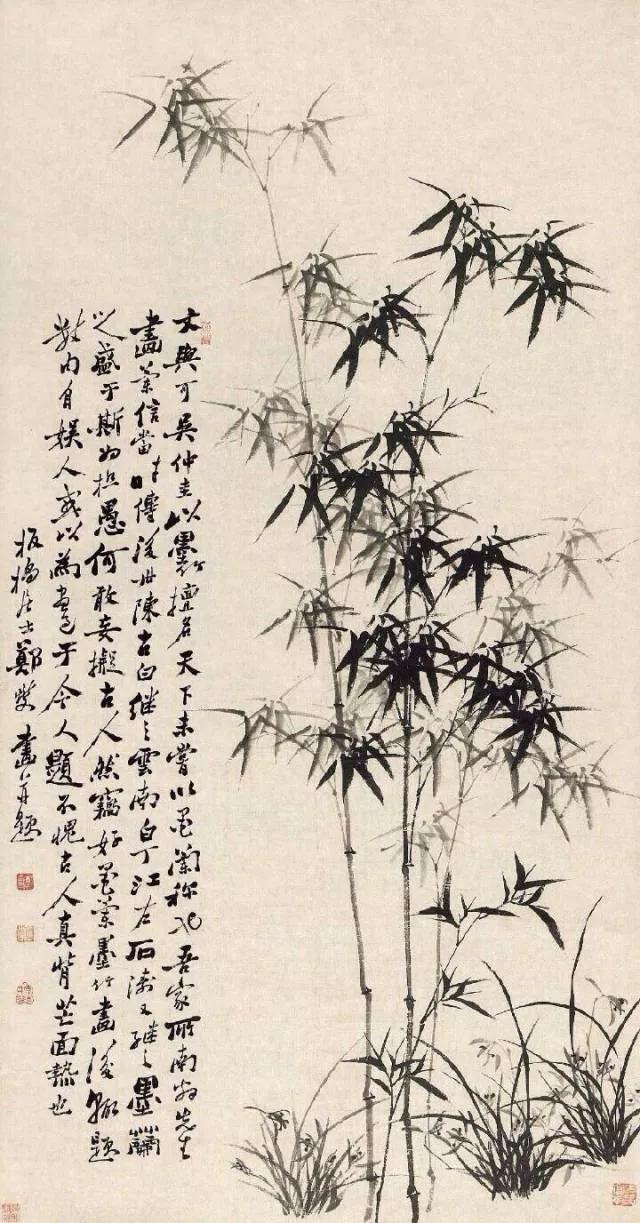 文與可吳仲圭以墨竹擅名天下未嘗以墨蘭稱也吾家所南翁先生
畫蘭信當時傳後世陳古白继之雲南白丁江右石濤又继之墨蘭
之盛于斯為極愚何敢妄擬古人然竊好墨蘭墨竹畫後輒題
數句自娱人或以為畫于今人題不愧古人真背芒面熱也
板橋居士鄭燮畫并題